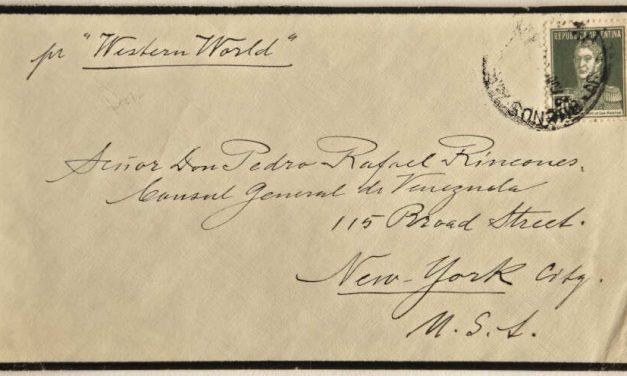 pr "Western World"
REPUBLICA ARGENTINA
BUENOS
Señor Don Pedro Rafael Rincones.
Consul General de Venezuela
115 Broad Street.
New-York City.
U.S.A.